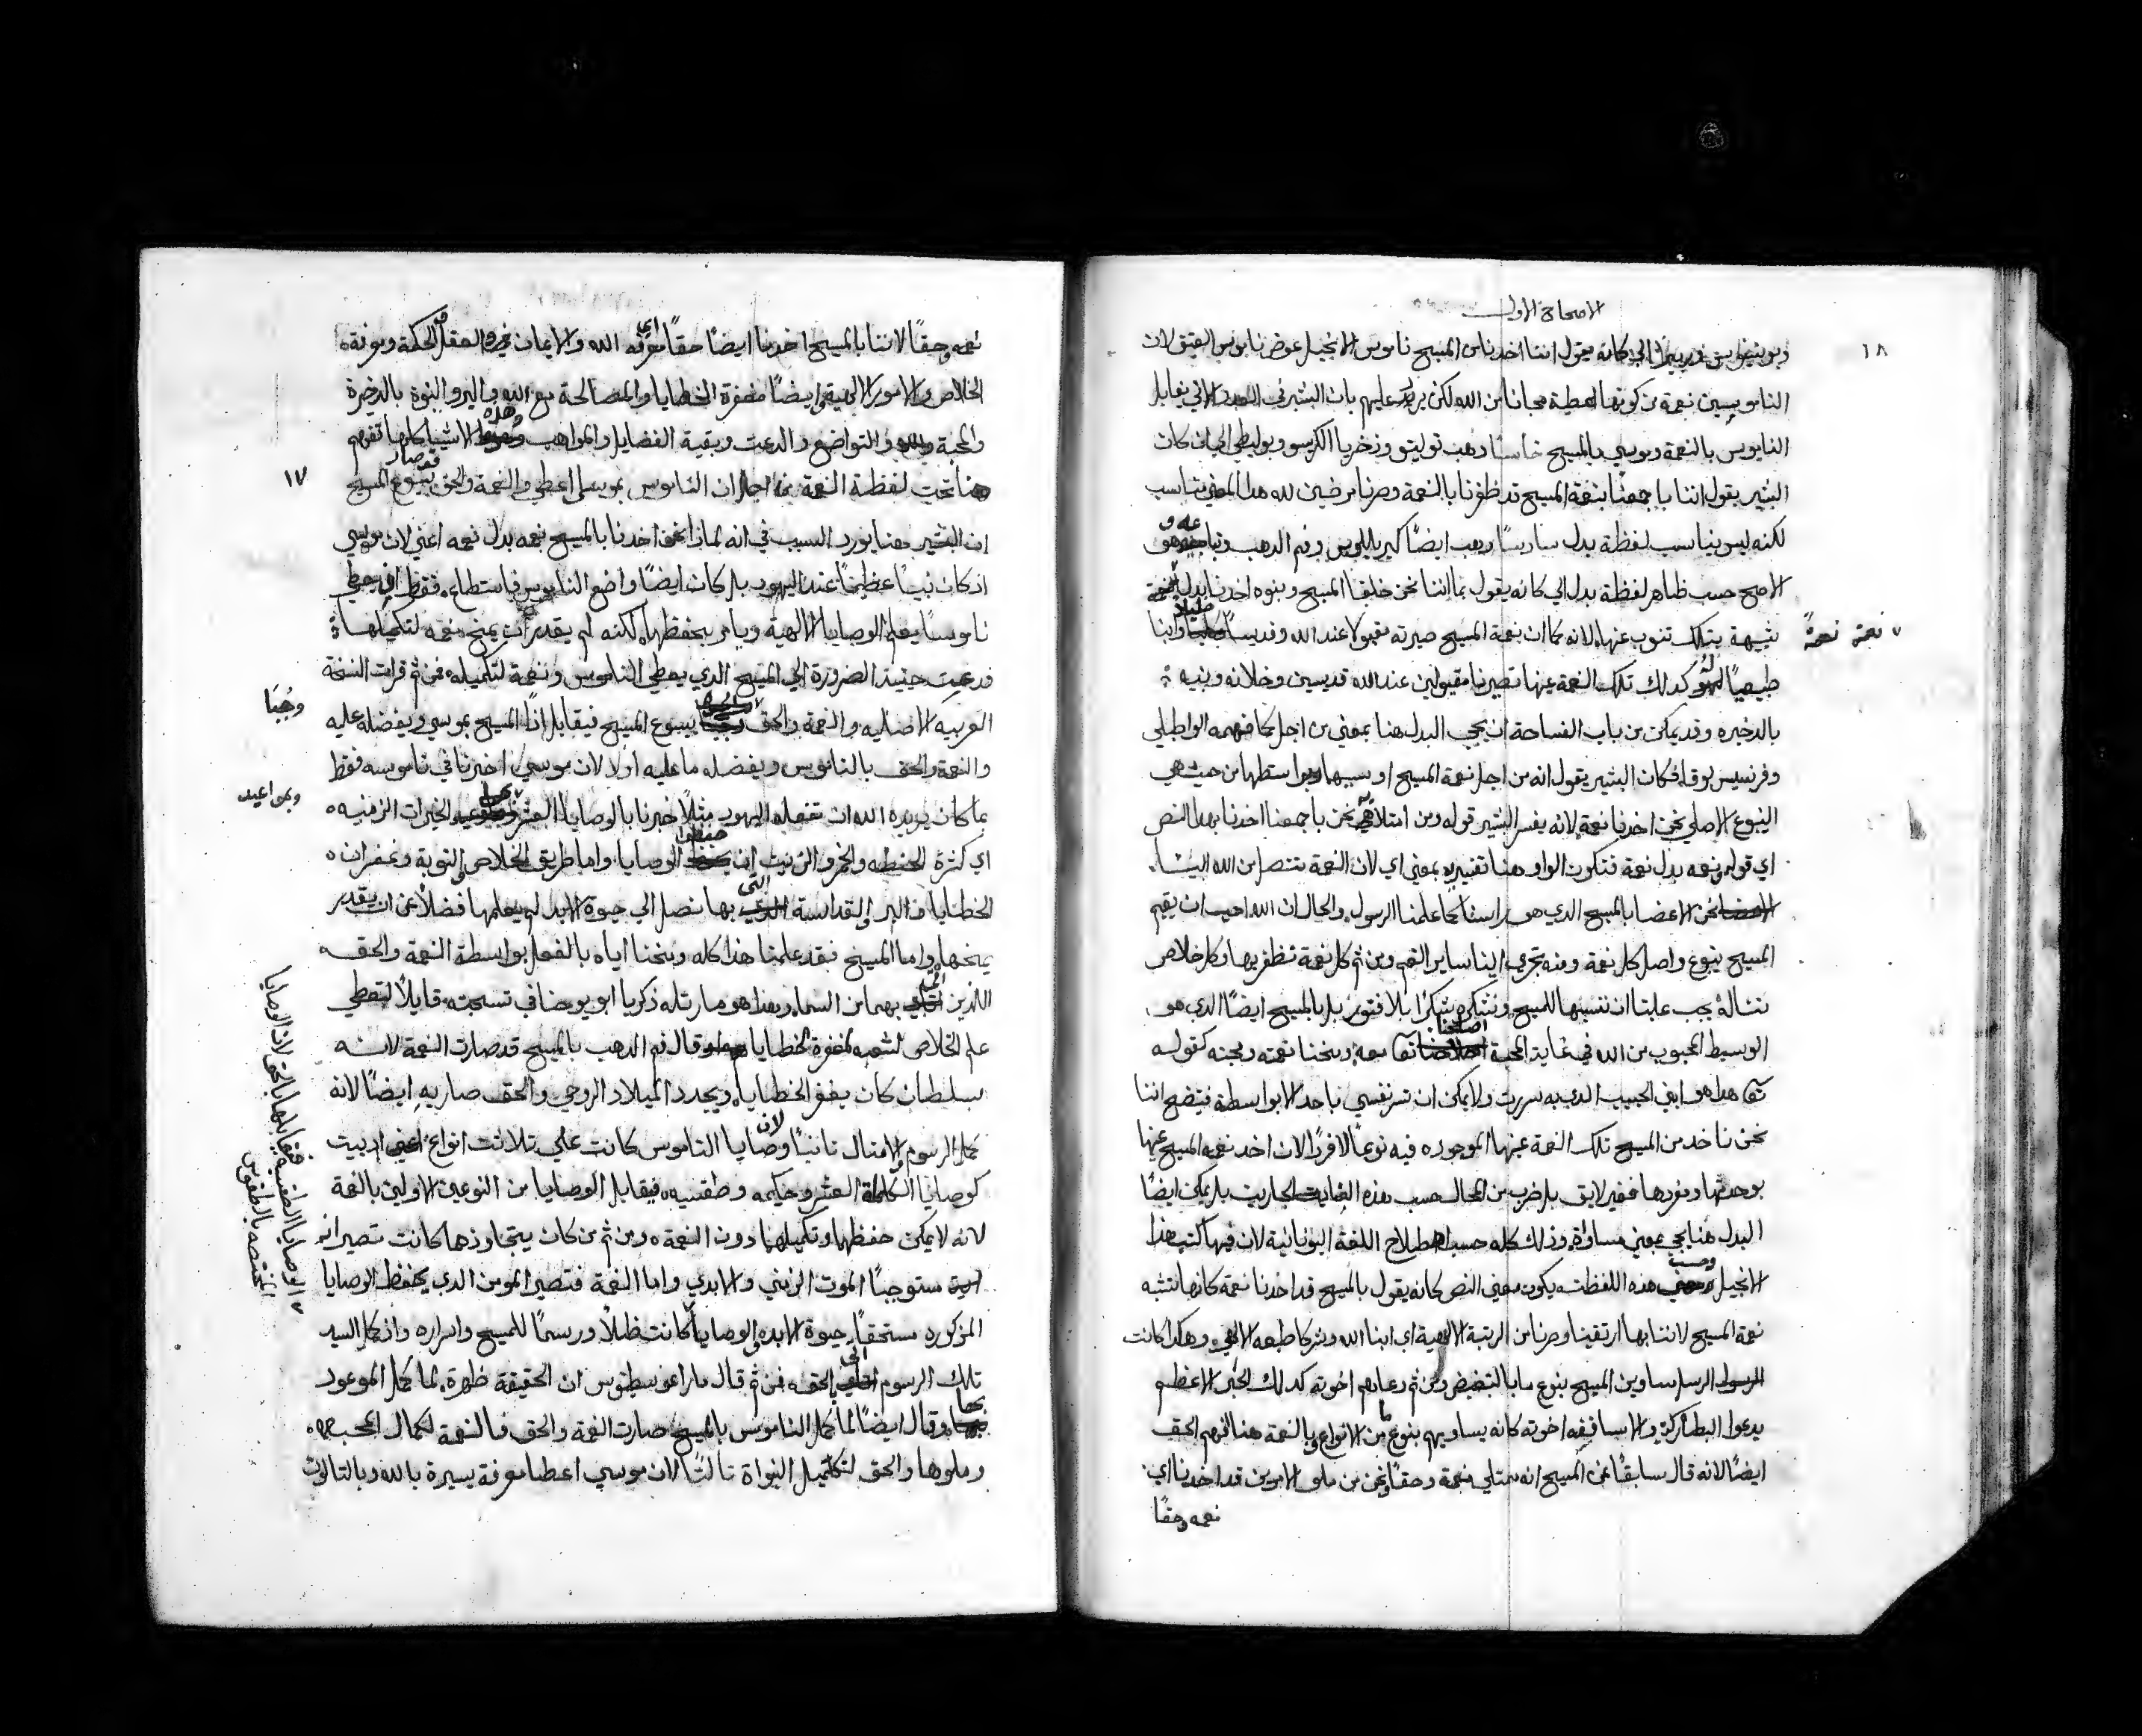 الاصحاح الاول
١٨
اننا اخدنا من المسيح ناموس الانجيل عوض ناموس العتيق لان
الناموسيين نعمة من كونها لعطية مجانا من الله لكن يرد عليهم بان البشير في العدد الاتي يقابل
الناموس بالنعمة وموسي بالمسيح خامسا دهب توليتو وزخريا الكريسوبوليطي الي ان كان
البشير يقول اننا باجمعنا بنعمة المسيح قد ظفرنا بالنعمة وصرنا مرضيين لله هدا المعني يناسب
لكنه ليس يناسب لفظة بدل سادسا دهب ايضا كيرللوس وفم الدهب
الاصح حسب ظاهر لفظة بدل الي كانه يقول بما اننا نحن خلفا المسيح وبنوه اخدنا بدل نعمة
نعمة نعمةً
شبيهة بتلك تنوب عنها لانه كما ان نعمة المسيح صيرته مقبولا عند الله وقديسا وابنا
طبيعيا له كدلك تلك النعمة عينها تصيرنا مقبولين عند الله قديسين وخلانه وبنيه
بالدخيره وقد يمكن من باب الفساحة ان يجي البدل هنا بمعني من اجل كما فهمه الواطبلي
وفرنسيس لوقا فكان البشير يقول انه من اجل نعمة المسيح او بسببها وبواسطتها من حيث هي
الينبوع الاصلي نحن اخدنا نعمة لانه يفسر البشير قوله ومن امتلايه نحن باجمعنا اخدنا بهدا النص
اي قوله ونعمه بدل نعمة فتكون الواو هنا تفسيريه بمعني اي لان النعمة تتصل من الله الينا
نحن الاعضا بالمسيح الدي هو راسنا كما علمنا الرسول والحال ان الله احب ان يقيم
المسيح ينبوع واصل كل نعمة ومنه تجري الينا ساير النعم ومن ثم كل نعمة نظفر بها وكل خلاص
نناله يجب علينا ان ننسبها للمسيح ونشكره شكرا بلا فتور بل بالمسيح ايضا الدي هو
الوسيط المحبوب من الله في غاية المحبة اصلحنا تعا معه ومنحنا نعمته ومحبته كقوله
تعا هدا هو ابني الحبيب الدي به سررت ولا يمكن ان تسر نفسي باحد الا بواسطة فيتضح اننا
نحن ناخد من المسيح تلك النعمة عينها الموجوده فيه نوعا لا فردا لان اخد نعمه المسيح عينها
بوحدتها ومفردها فغير لايق بل ضرب من المحال حسب هده الغايه الجاريه بل يمكن ايضا
البدل هنا يجي بمعني مساواة وذلك كله حسب اصطلاح اللغة اليونانية لان فيها كتب هدا
الانجيل وحسب هذه اللفظه يكون معني النص كانه يقول بالمسيح قد اخدنا نعمة كانها تشبه
نعمة المسيح لاننا بها ارتقينا وصرنا من الرتبة الالهية اي ابنا الله وشركا طبعه الالهي وهكدا كانت
الرسل مساوين المسيح بنوع ما بالتبغيض ومن ثم دعاهم اخوته كدلك الحبر الاعظم
يدعوا البطاركة والاساقفه اخوته كانه يساويهم بنوع ما من الانواع وبالنعمة هنا افهم الحق
ايضا لانه قال سابقا عن المسيح انه ممتلي نعمة وحقا ونحن من ملوه الامرين قد اخدنا اي
نعمه وحقا
نعمه وحقا لاننا بالمسيح اخدنا ايضا حقا اي معرفة الله والايمان العقل والحكمة ومعرفة
الخلاص والامور الالهية وايضا مغفرة الخطايا والمصالحة مع الله والبر والبنوة بالدخيرة
والمحبة والتواضع والدعت وبقية الفضايل والمواهب وهده الاشيا كلها تفهم
١٧
هنا تحت لفظة النعمة من اجل ان الناموس بموسي اعطي والنعمة والحق فقد صار بيسوع المسيح
ان البشير هنا يورد السبب في انه لماذا نحن اخدنا بالمسيح نعمه بدل نعمه اعني لان موسي
اذ كان نبيا عظيما عند اليهود بل كان ايضا واضع الناموس فاستطاع فقط ان يعطي
ناموسا يعلم الوصايا الالهية ويامر بحفظها لكنه لم يقدر ان يمنح نعمه لتكميلها
فدعيت حينيذ الضرورة الي المسيح الدي يعطي الناموس ونعمة لتكميله فمن ثم قرات النسخة
وجُبَا
العربيه الاصليه والنعمة والحق بيسوع المسيح فيقابل ادا المسيح بموسي ويفضله عليه
والنعمة والحق بالناموس ويفضلهما عليه اولا لان موسي اخبرنا في ناموسه فقط
وبمواعيد
بما كان يريده الله ان تفعله اليهود مثلا خبرنا بالوصايا العشر الخيرات الزمنيه
اي كثرة الحنطه والخمر والزيت ان حفظوا الوصايا واما طريق الخلاص والتوبة وغفران
الخطايا والبر والقداسة التي بها نصل الي حيوة الابد لم يعلمها فضلا عن ان يقدر
يمنحها واما المسيح فقد علمنا هذا كله ومنحنا اياه بالفعل بواسطة النعمة والحق
اللذين بهما من السما وهذا هو ما رتله زكريا ابو يوحنا في تسبحته قايلا لتعطي
علم الخلاص لشعبه لمغفرة الخطايا وقال فم الدهب بالمسيح قد صارت النعمة لانه
بسلطان كان يغفر الخطايا ويجدد الميلاد الروحي والحق صار به ايضا لانه
كمل الرسوم والامثال ثانيا لان وصايا الناموس كانت علي ثلاثت انواع اعني ادبيت
كوصايا الكلمات العشر وحكيمه وطقسيه فيقابل الوصايا من النوعين الاولين بالنعمة
لانه لا يمكن حفظها وتكميلها دون النعمة ومن ثم من كان يتجاوزها كانت تصيرانه
مستوجبا الموت الزمني والابدي واما النعمة فتصير المومن الدي يحفظ الوصايا
المزكوره مستحقا حيوة الابد والوصايا كانت ظلا ورسما للمسيح واسراره واذ كمل السيد
الوصايا الطقسيه فيقابلها بالحق لان الوصايا
المختصه بالطقوس
تلك الرسوم اتي الحق فمن ثم قال مار اغوسطينوس ان الحقيقة ظهرة لما كمل الموعود
بها وقال ايضا لما كمل الناموس بالمسيح صارت النعمة والحق فالنعمة لكمال المحبه
وملوها والحق لتكميل النبواة ثالثا لان موسي اعطا معرفة يسيرة بالله وبالثالوث